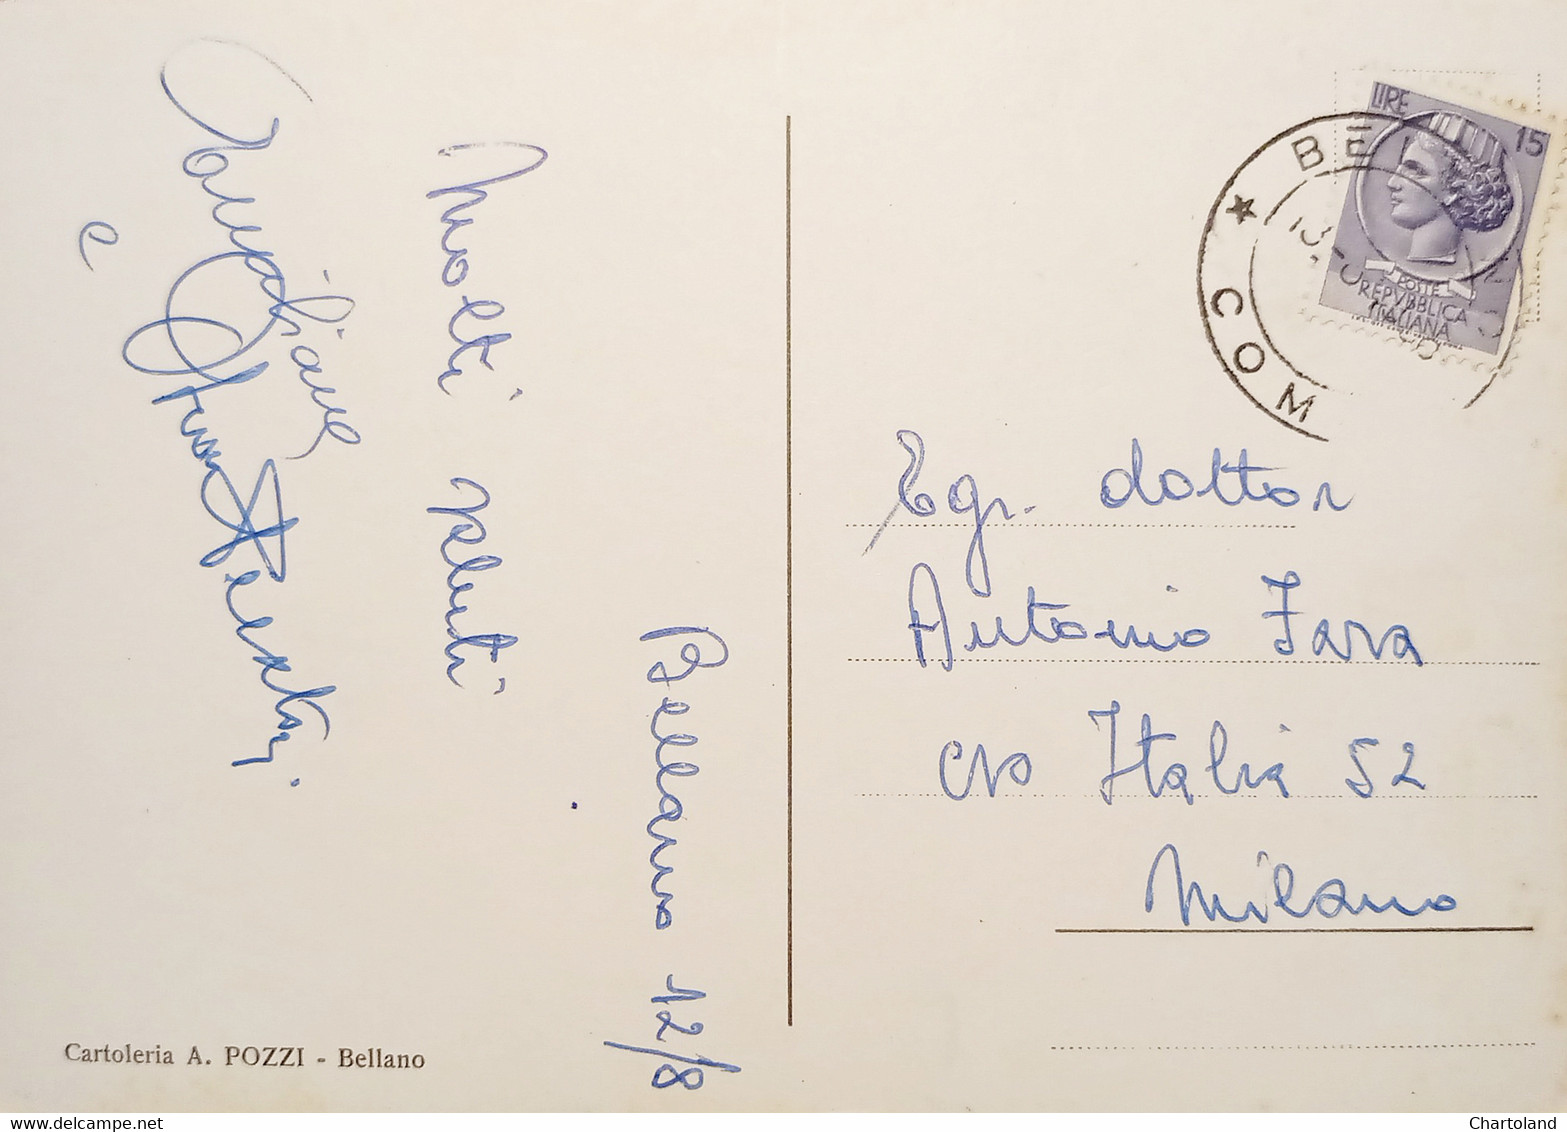 Bellano 12/8
Molti saluti
e
Cartoleria A. POZZI - Bellano
LIRE 15
POSTE
REPVBBLICA
ITALIANA
BE
COM
13
Egr. dottor
Antonio Fara
c/so Italia 52
Milano
www.delcampe.net
Chartoland